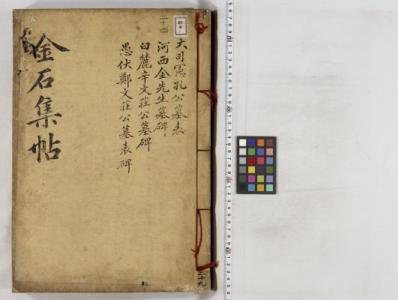 大司憲孔公墓表
河西金先生墓碑
白麓辛文莊公墓碑
愚伏鄭文莊公墓表碑
金石集帖